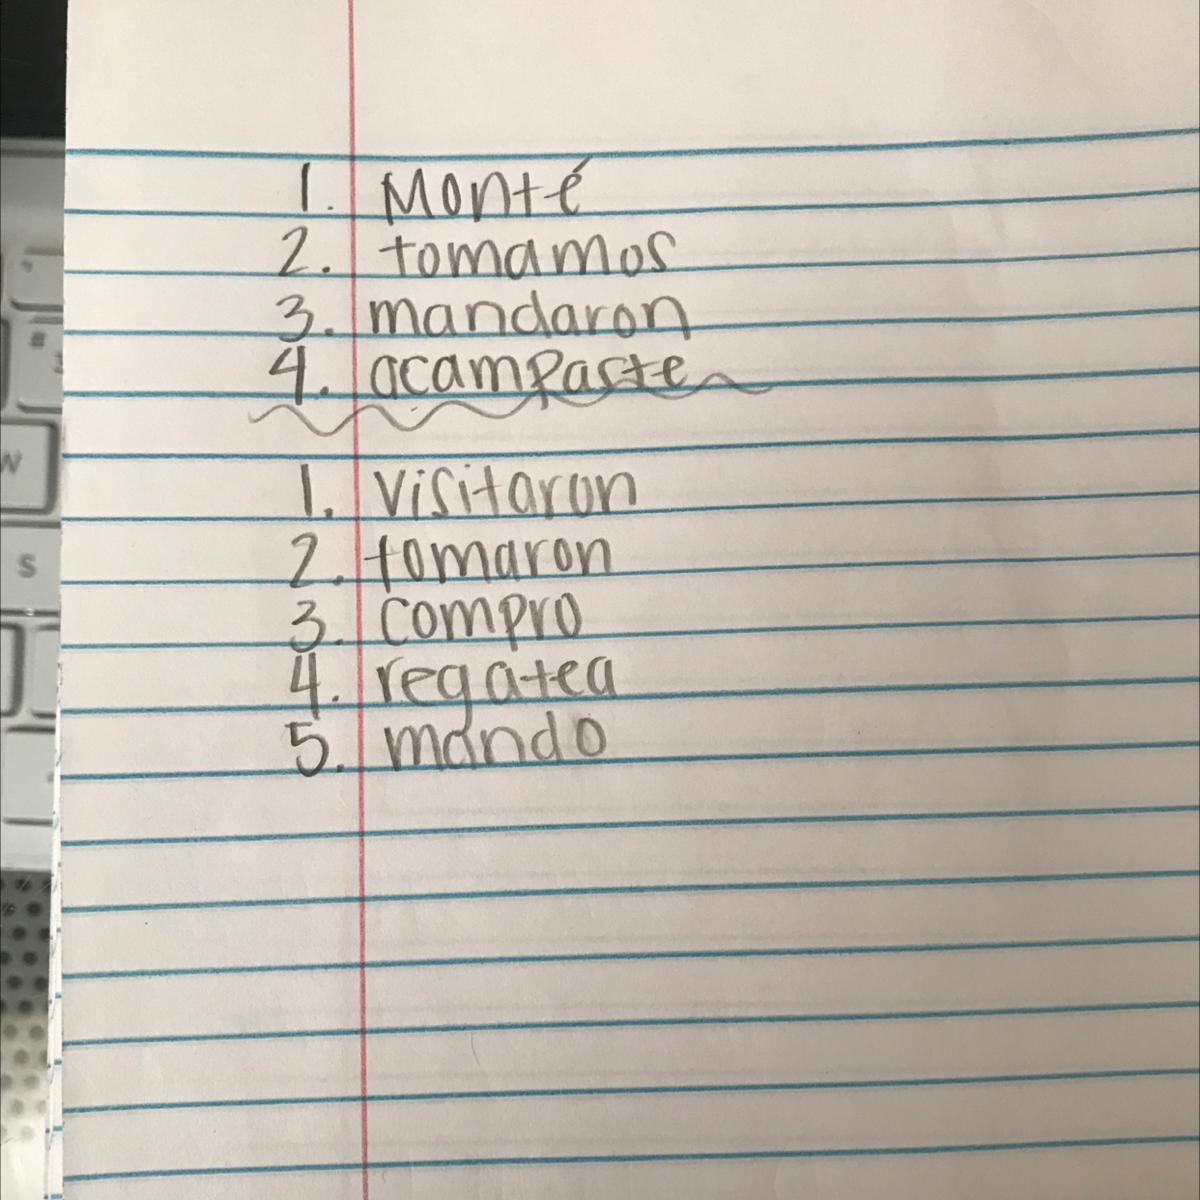 1. Monté
2. tomamos
3. mandaron
4. acampaste
1. visitaron
2. tomaron
3. compro
4. regatea
5. mando
#
W
S